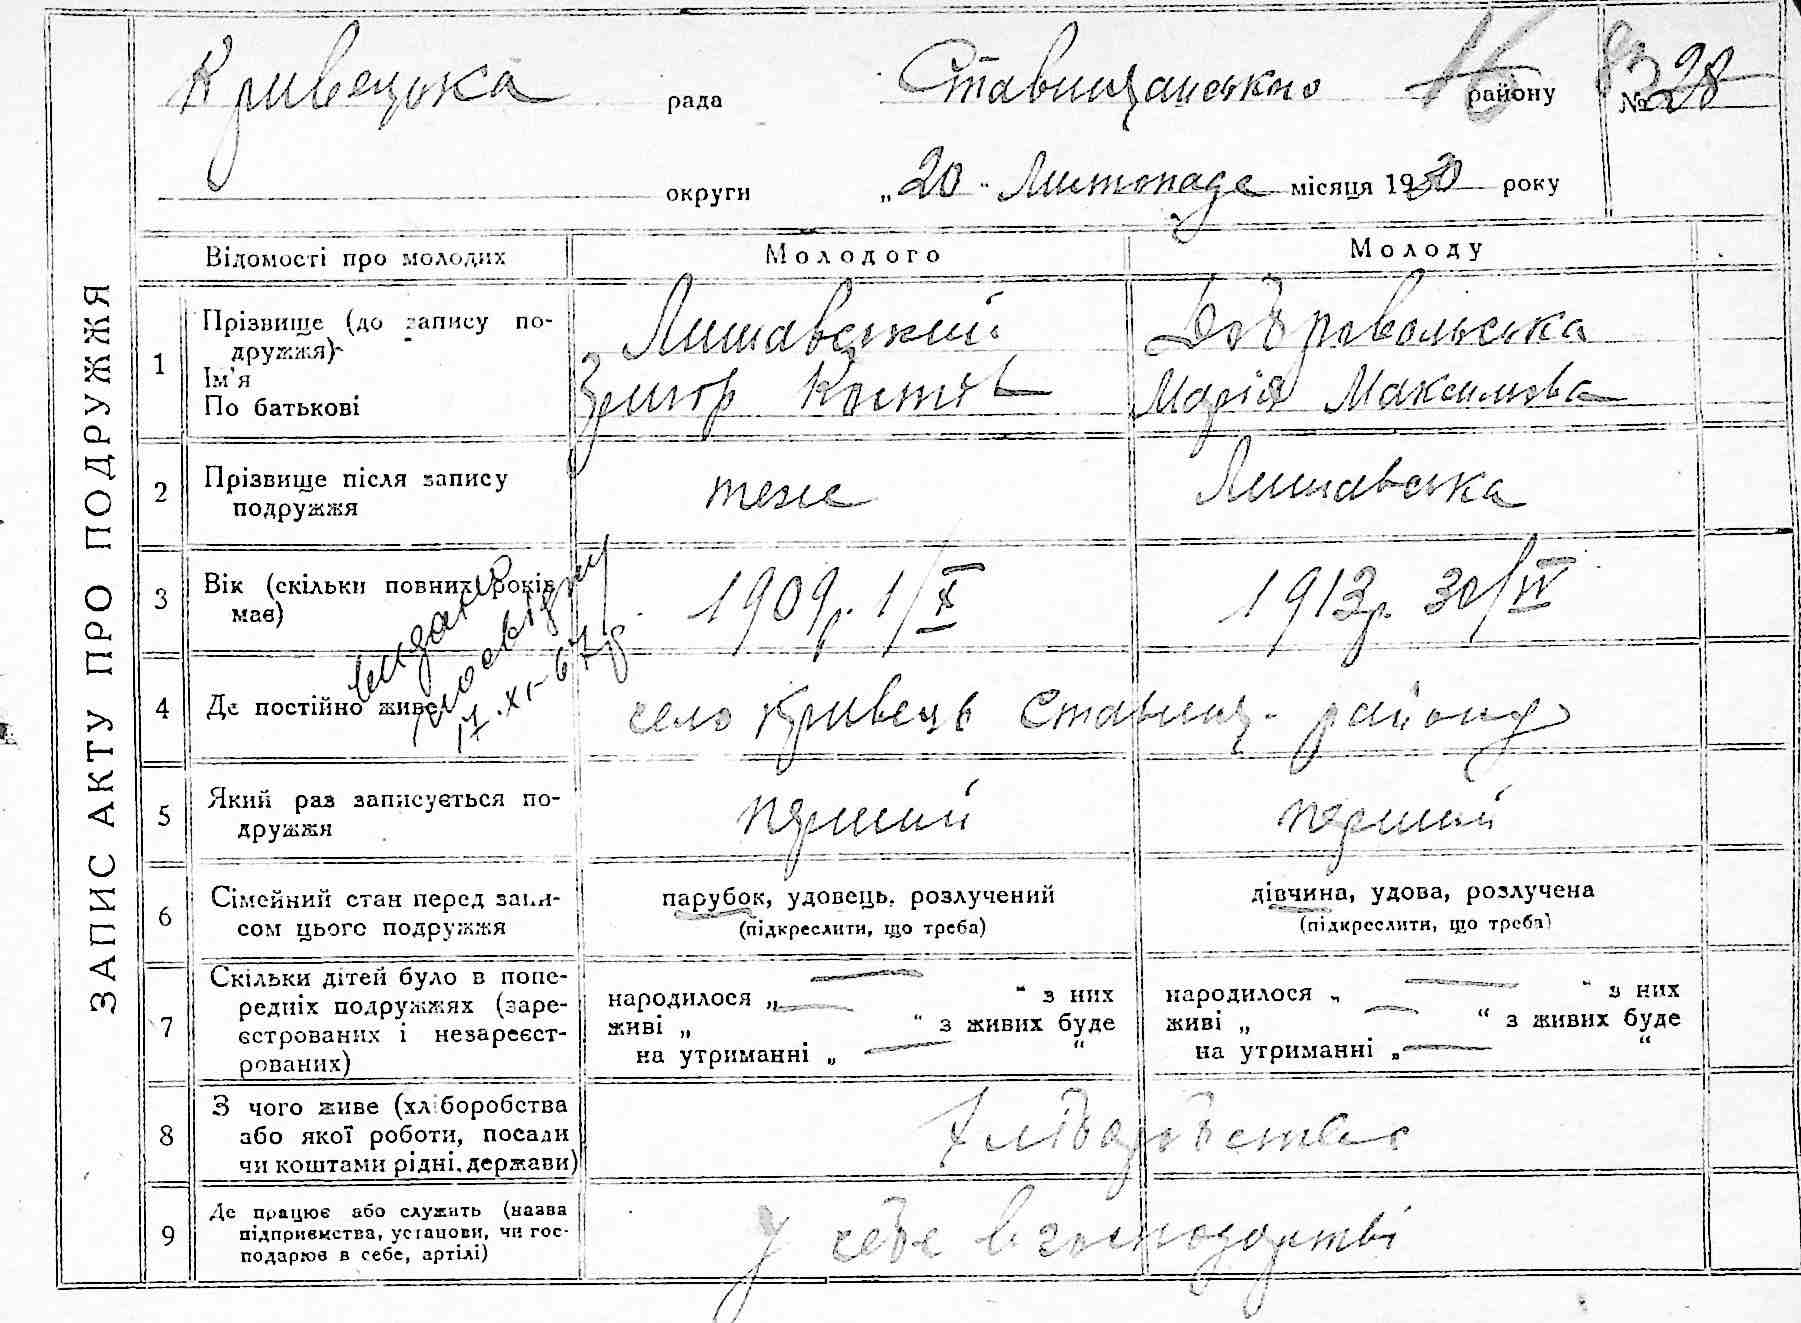 ЗАПИС АКТУ ПРО ПОДРУЖЖЯ
Кривецька рада Ставищанського району № 28
округи „20“ Листопада місяця 1930 року
Відомості про молодих Молодого Молоду
1 Прізвище (до запису по-
дружжя) Лишавський Добровольська
Ім'я
По батькові Григор Костів Марія Максимова
2 Прізвище після запису
подружжя теж Лишавська
3 Вік (скільки повних років
має) 1909р. 1/X 1913р. 30/IV
видано
17.XI-67р
4 Де постійно живе село Кривець Ставищ. району
5 Який раз записується по-
дружжя перший перший
6 Сімейний стан перед запи-
сом цього подружжя
парубок, удовець, розлучений
(підкреслити, що треба)
дівчина, удова, розлучена
(підкреслити, що треба)
7 Скільки дітей було в попе-
редніх подружжях (заре-
єстрованих і незареєст-
рованих)
народилося „ — “ з них
живі „ — “ з живих буде
на утриманні „ — “
народилося „ — “ з них
живі „ — “ з живих буде
на утриманні „ — “
8 З чого живе (хліборобства
або якої роботи, посади
чи коштами рідні, держави) Хліборобство
9 Де працює або служить (назва
підприємства, установи, чи гос-
подарює в себе, артілі) у себе в господарстві